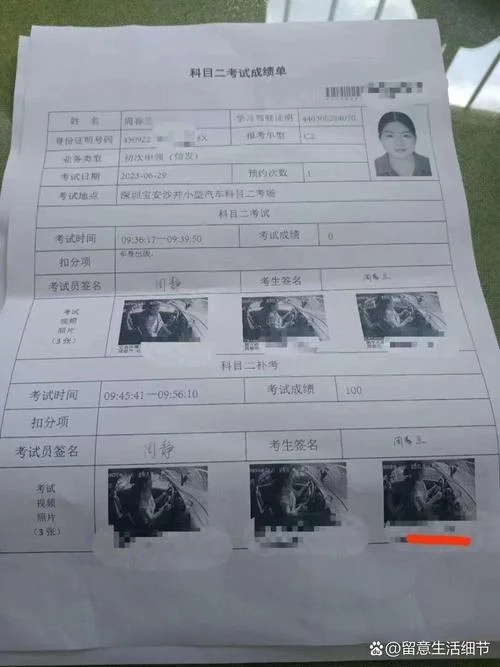 科目二考试成绩单
姓 名 周春兰 学习驾驶证明 440300284030
身份证明号码 430922 8X 报考车型 C2
业务类型 初次申领（信发）
考试日期 2023-06-29 预约次数 1
考试地点 深圳宝安沙井小型汽车科目二考场
科目二考试
考试时间 09:36:17—09:39:50 考试成绩 0
扣分项 车身出线、
考试员签名 周静 考生签名 周春兰
考试
视频
照片
（3 张）
科目二补考
考试时间 09:45:41—09:56:10 考试成绩 100
扣分项
考试员签名 周静 考生签名 周春兰
考试
视频
照片
（3 张）
百度@留意生活细节